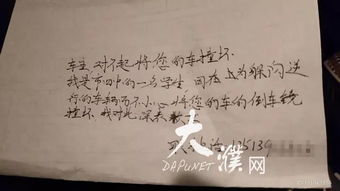 车主,对不起将您的车撞坏
我是市四中的一名学生 因在上为躲闪逆
行的车辆而不小心将您的车的倒车镜
撞坏,我对此深表歉
135139
大濮网
DAPUNET